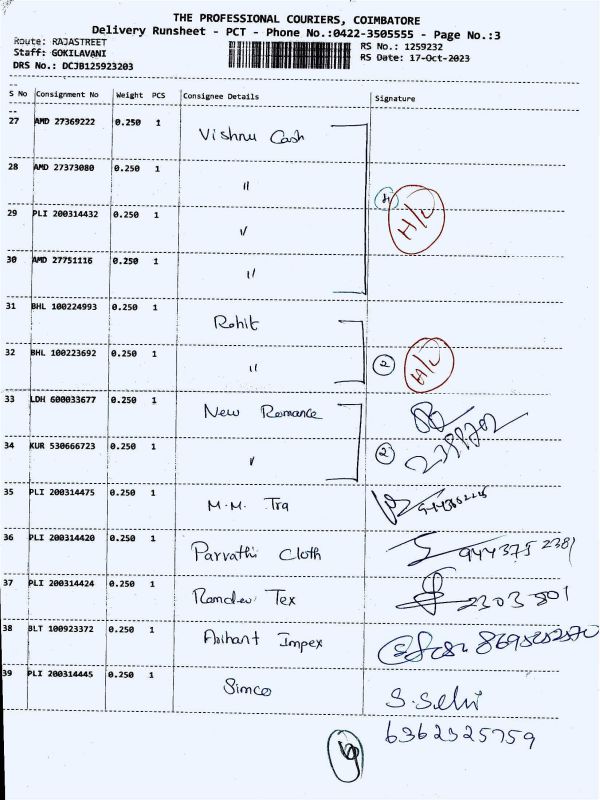 THE PROFESSIONAL COURIERS, COIMBATORE
Delivery Runsheet - PCT - Phone No.:0422-3505555 - Page No.:3
Route: RAJASTREET
Staff: GOKILAVANI
DRS No.: DCJB125923203
RS No.: 1259232
RS Date: 17-Oct-2023
S No Consignment No Weight PCS Consignee Details Signature
27 AMD 27369222 0.250 1 Vishnu Cash
28 AMD 27373080 0.250 1 "
29 PLI 200314432 0.250 1 " 4 H/L
30 AMD 27751116 0.250 1 "
31 BHL 100224993 0.250 1 Rohit
32 BHL 100223692 0.250 1 " 2 H/L
33 LDH 600033677 0.250 1 New Romance
34 KUR 530666723 0.250 1 " 2
35 PLI 200314475 0.250 1 M.M. Tra
36 PLI 200314420 0.250 1 Parvathi Cloth 944375 2381
37 PLI 200314424 0.250 1 Ramdev Tex 2303801
38 BLT 100923372 0.250 1 Arihant Impex
39 PLI 200314445 0.250 1 Simco S. Selvi
6362525759